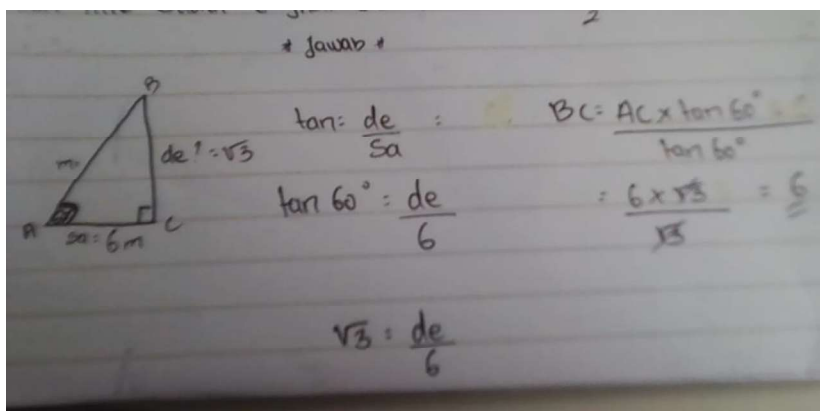 2
* Jawab *
B
m
de? = √3
A
sa = 6m
C
tan = de/sa =
tan 60° = de/6
√3 = de/6
BC = AC x tan 60°/tan 60°
= 6 x √3/√3 = 6